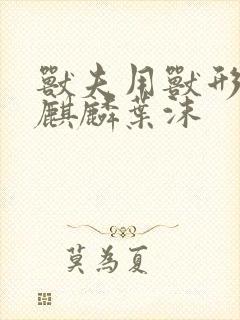 獸夫用獸形
麒麟葉沫
莫為夏